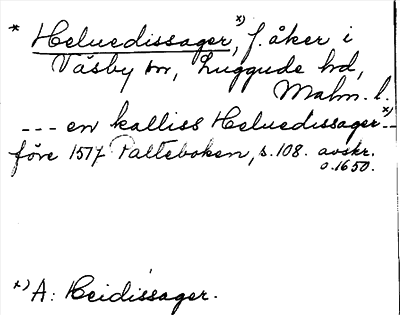 * Heluedissager, *) f. åker i
Väsby sn, Luggude hd,
Malm. l.
--- en kalliss Heluedissager *) --
före 1517 Palteboken, s. 108. avskr.
o. 1650.
*) A: Heidissager.